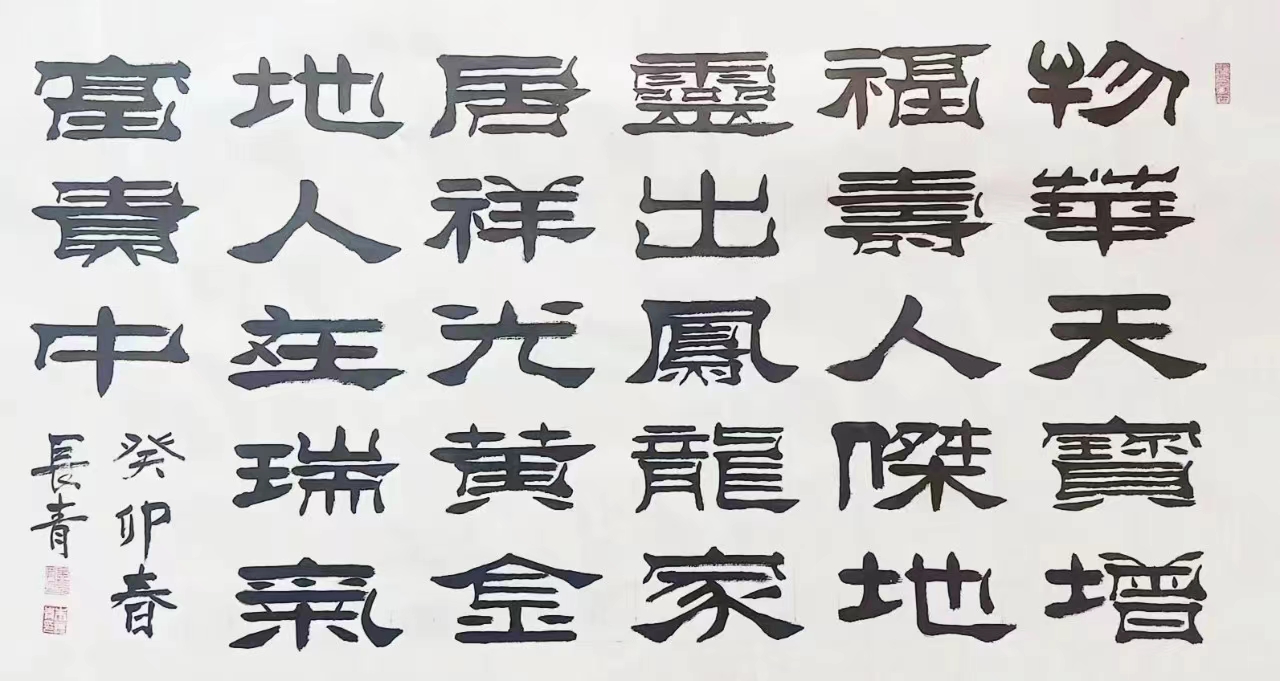 物華天寶增
福壽人傑地
靈出鳳龍家
居祥光黄金
地人在瑞氣
富貴中
癸卯春
長青